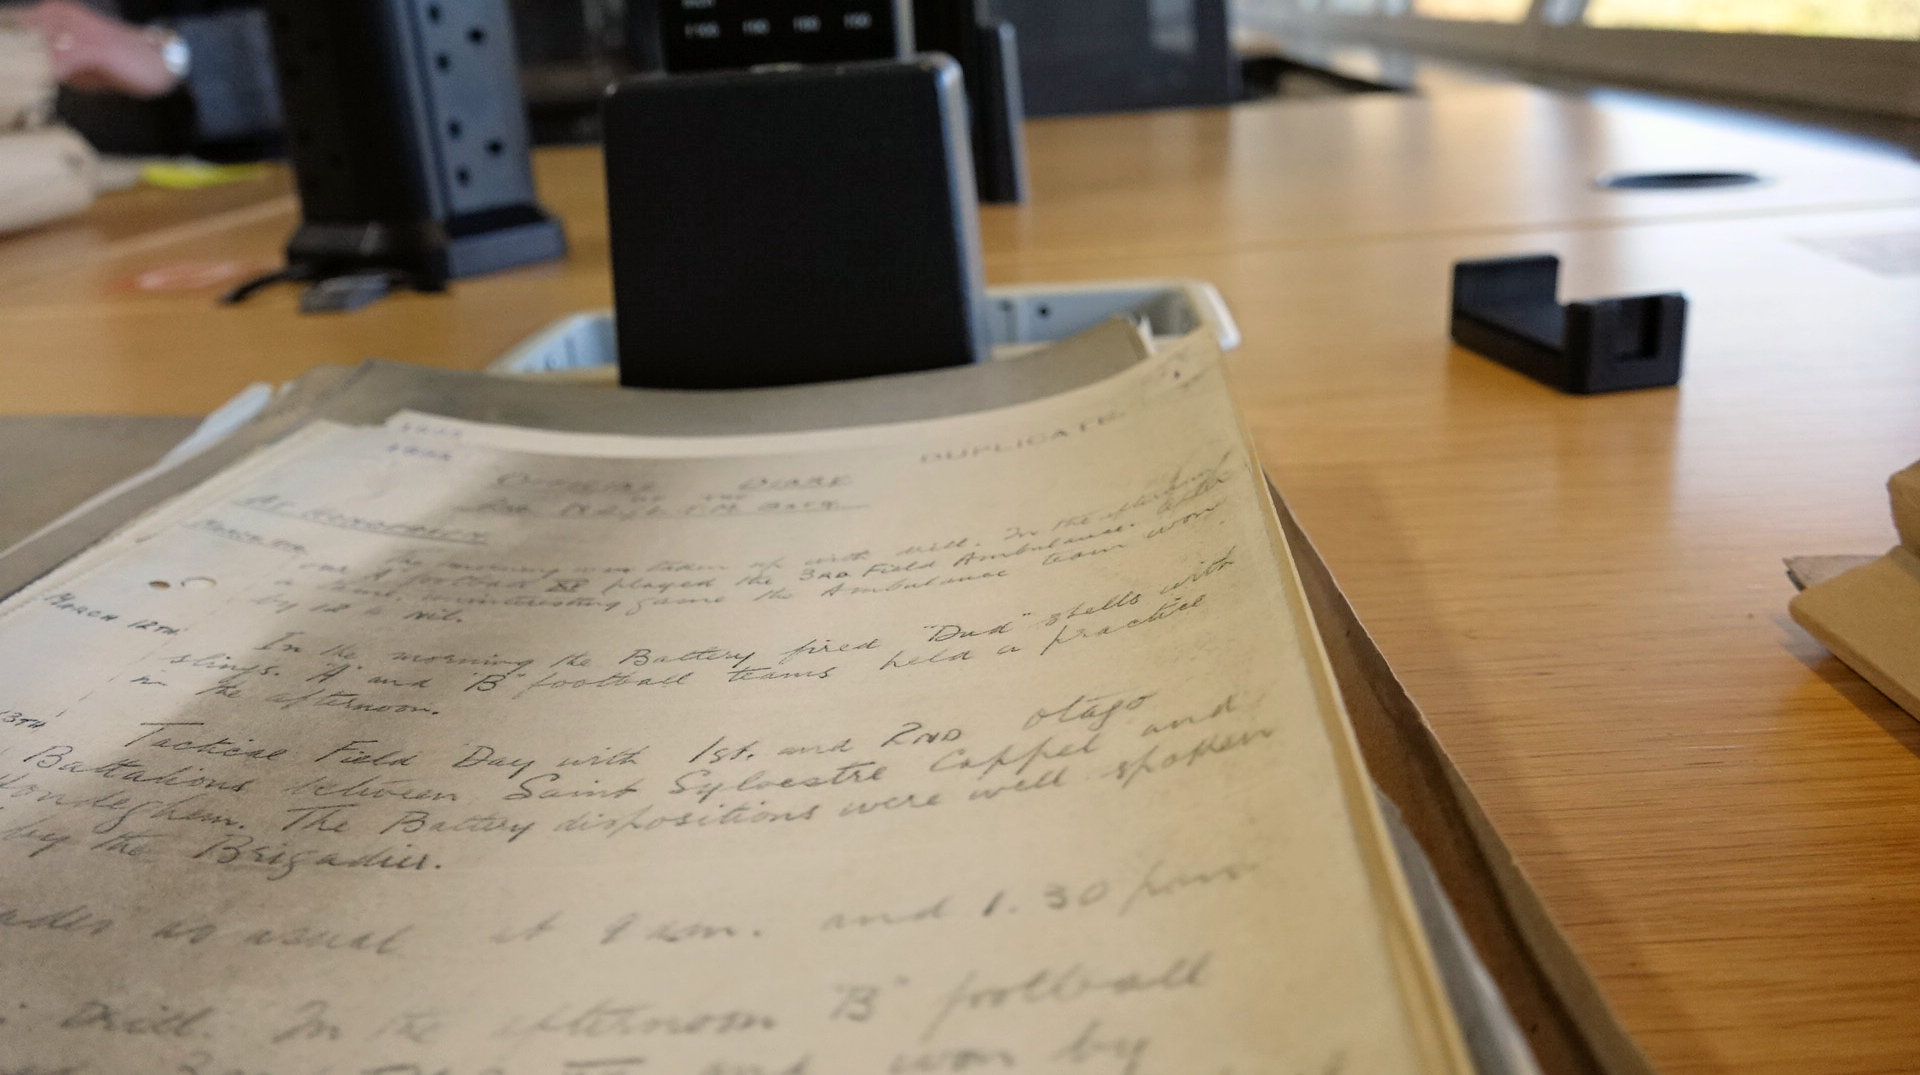 DUPLICATE.
OFFICIAL DIARY
OF THE
AT HONDEGHEM
MARCH
the morning was taken up with drill. In the afternoon
our A football XI played the 3RD Field Ambulance. After
a uninteresting game the Ambulance team won
by 12 to nil.
MARCH 12TH. In the morning the Battery fired "Dud" shells with
slings. "A" and "B" football teams held a practice
in the afternoon.
13TH Tactical Field Day with 1st. and 2ND Otago
Battalions between Saint Sylvestre Cappel and
Hondeghem. The Battery dispositions were well spoken
by the Brigadier.
as usual at 9 am. and 1.30 pm
Drill. In the afternoon "B" football
and won by